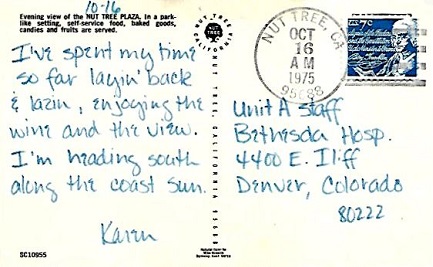 10-16
Evening view of the NUT TREE PLAZA. In a park-
like setting, self-service food, baked goods,
candies and fruits are served.
I've spent my time
so far layin' back
& lazin, enjoying the
wine and the view.
I'm heading south
along the coast Sun.
Karen
SC10955
NUT TREE
CALIFORNIA
NUT TREE, CALIFORNIA 95688
NUT TREE, CA
OCT
16
AM
1975
95688
7c
Unit A Staff
Bethesda Hosp.
4400 E. Iliff
Denver, Colorado
80222